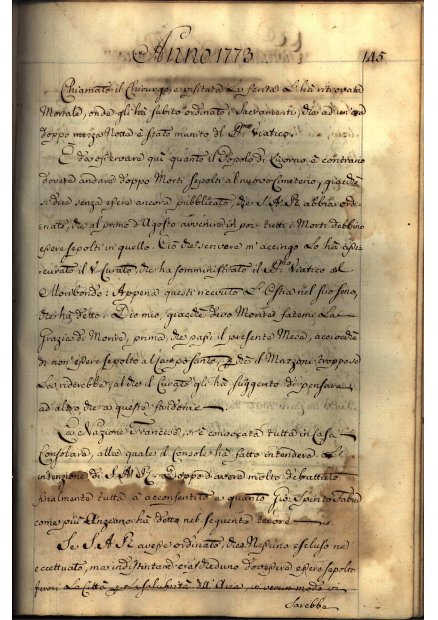 Anno 1773 145
Chiamato il Chirurgo, e visitata La ferita L'ha ritrovata
Mortale, onde gli hà subito ordinato i Sacramenti, che ad un'ora
doppo mezza Notte è stato munito del Viatico.
E da osservare quì quanto il Popolo di Livorno è contrario
dovere andare doppo Morti sepolti al nuovo Cimiterio, giacche
si dice senza essere ancora pubblicato, che S. A. R. abbia ordi-
nato, che al primo d'Agosto avvenire in poi tutti i Morti debbino
essere sepolti in quello. Ciò che scrivere m'accingo Lo hà
il Curato, che hà somministrato il Viatico al
Moribondo: Appena questi ricevuto L'Ostia nel suo seno,
che hà detto: Dio mio, giacche devo Morire, fatemi La
Grazia di Morire, prima, che passi il presente Mese, acciocche
di non essere sepolto al Campo Santo, che il Marzoni troppo se
La riderebbe, al che il Curato gli hà suggerito di pensare
ad altro, che a queste
La Nazione Francese, si è convocata tutta in Casa
Consolare, alla quale il Console hà fatto intendere L'
intenzione di S. A. R. Doppo d'avere molto dibattuto
finalmente tutta à acconsentito a quanto Gio: Spirito
come più Anziano hà detto nel seguente tenore
Se S. A. R. avesse ordinato, che Nessuno escluso ne
eccettuato, ma indistintamente ciascheduno dovesse essere sepolto
fuori La Città Aria, in verun modo vi
Sarebbe